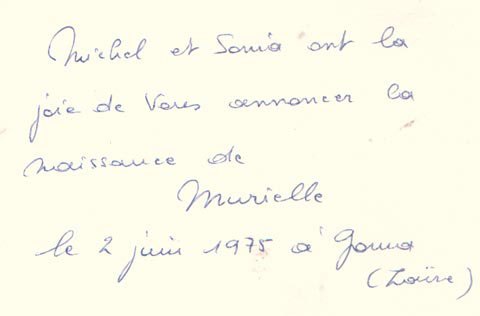 Michel et Sonia ont la
joie de Vous annoncer la
naissance de
Murielle
le 2 juin 1975 à Goma
(Zaïre)